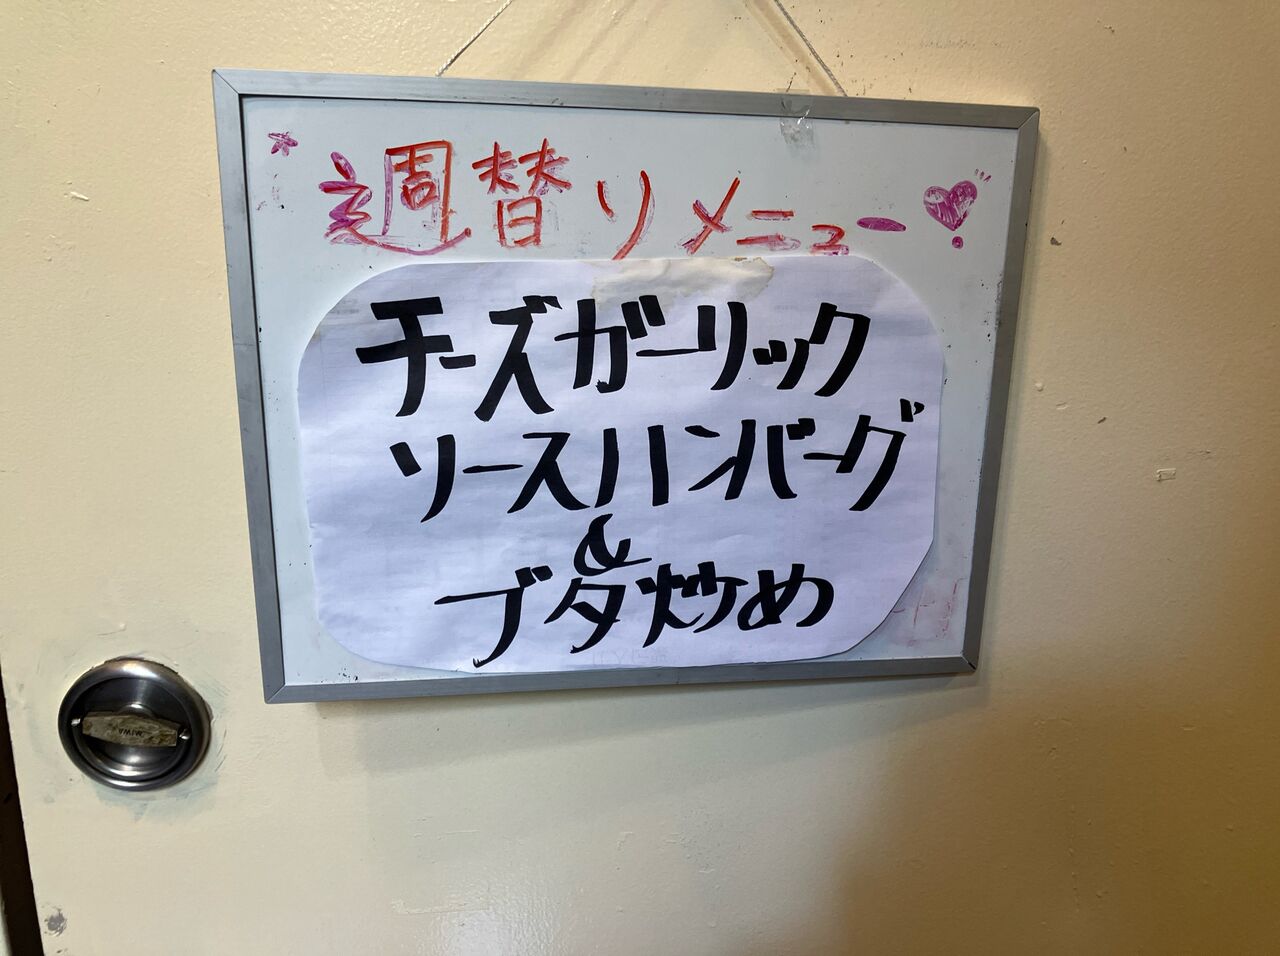 週替りメニュー
チーズガーリック
ソースハンバーグ
&
ブタ炒め
MIWA